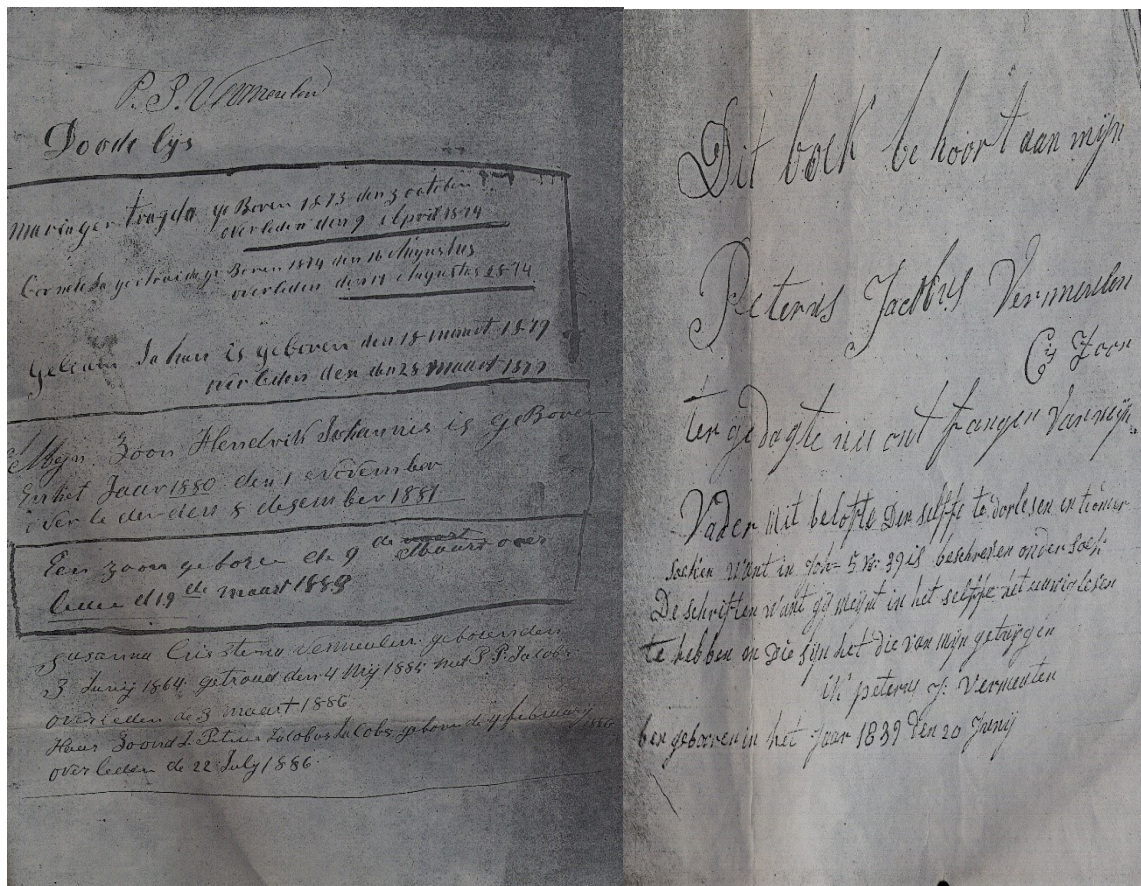 P. J. Vermeulen
Doode lys
geBoren 1873 den 3 october
overleden den 9 April 1874
geBoren 1874 den 16 Augustus
overleden den 17 Augustus 1874
Johan is geboren den 18 maart 1879
den 28 maart 1879
Mijn Zoon Hendrik Johannis is geBoren
En het Jaar 1880 den 1 November
over le den den 8 desember 1881
Een zoon geboren de 9 de maart over
leden d 19 de maart 1883
Susanna Cristina Vermeulen geboren den
3 Junij 1864 getroud den 4 Mij 1885 met P. P. Jacobs
overleden de 3 maart 1886
Haar Zoond J. Petrus Jacobus Jacobs gebore de 4 february 1886
overleden de 22 July 1886
Dit boek behoort aan mijn
Peterus Jacobus Vermeulen
Cs Zoon
ter gedagte nis ont fangen van mijn
Vader mit belofte Den selffe te dorlesen en
soeken want in Joh- 5 v: 39 is beschreven ondersoek
De schriften want gij meijnt in het selffe het euwig leven
te hebben en Die sijn het die van mijn getuijgen
ik peterus J: Vermeulen
ben gebooren in het Jaar 1839 Den 20 Junij